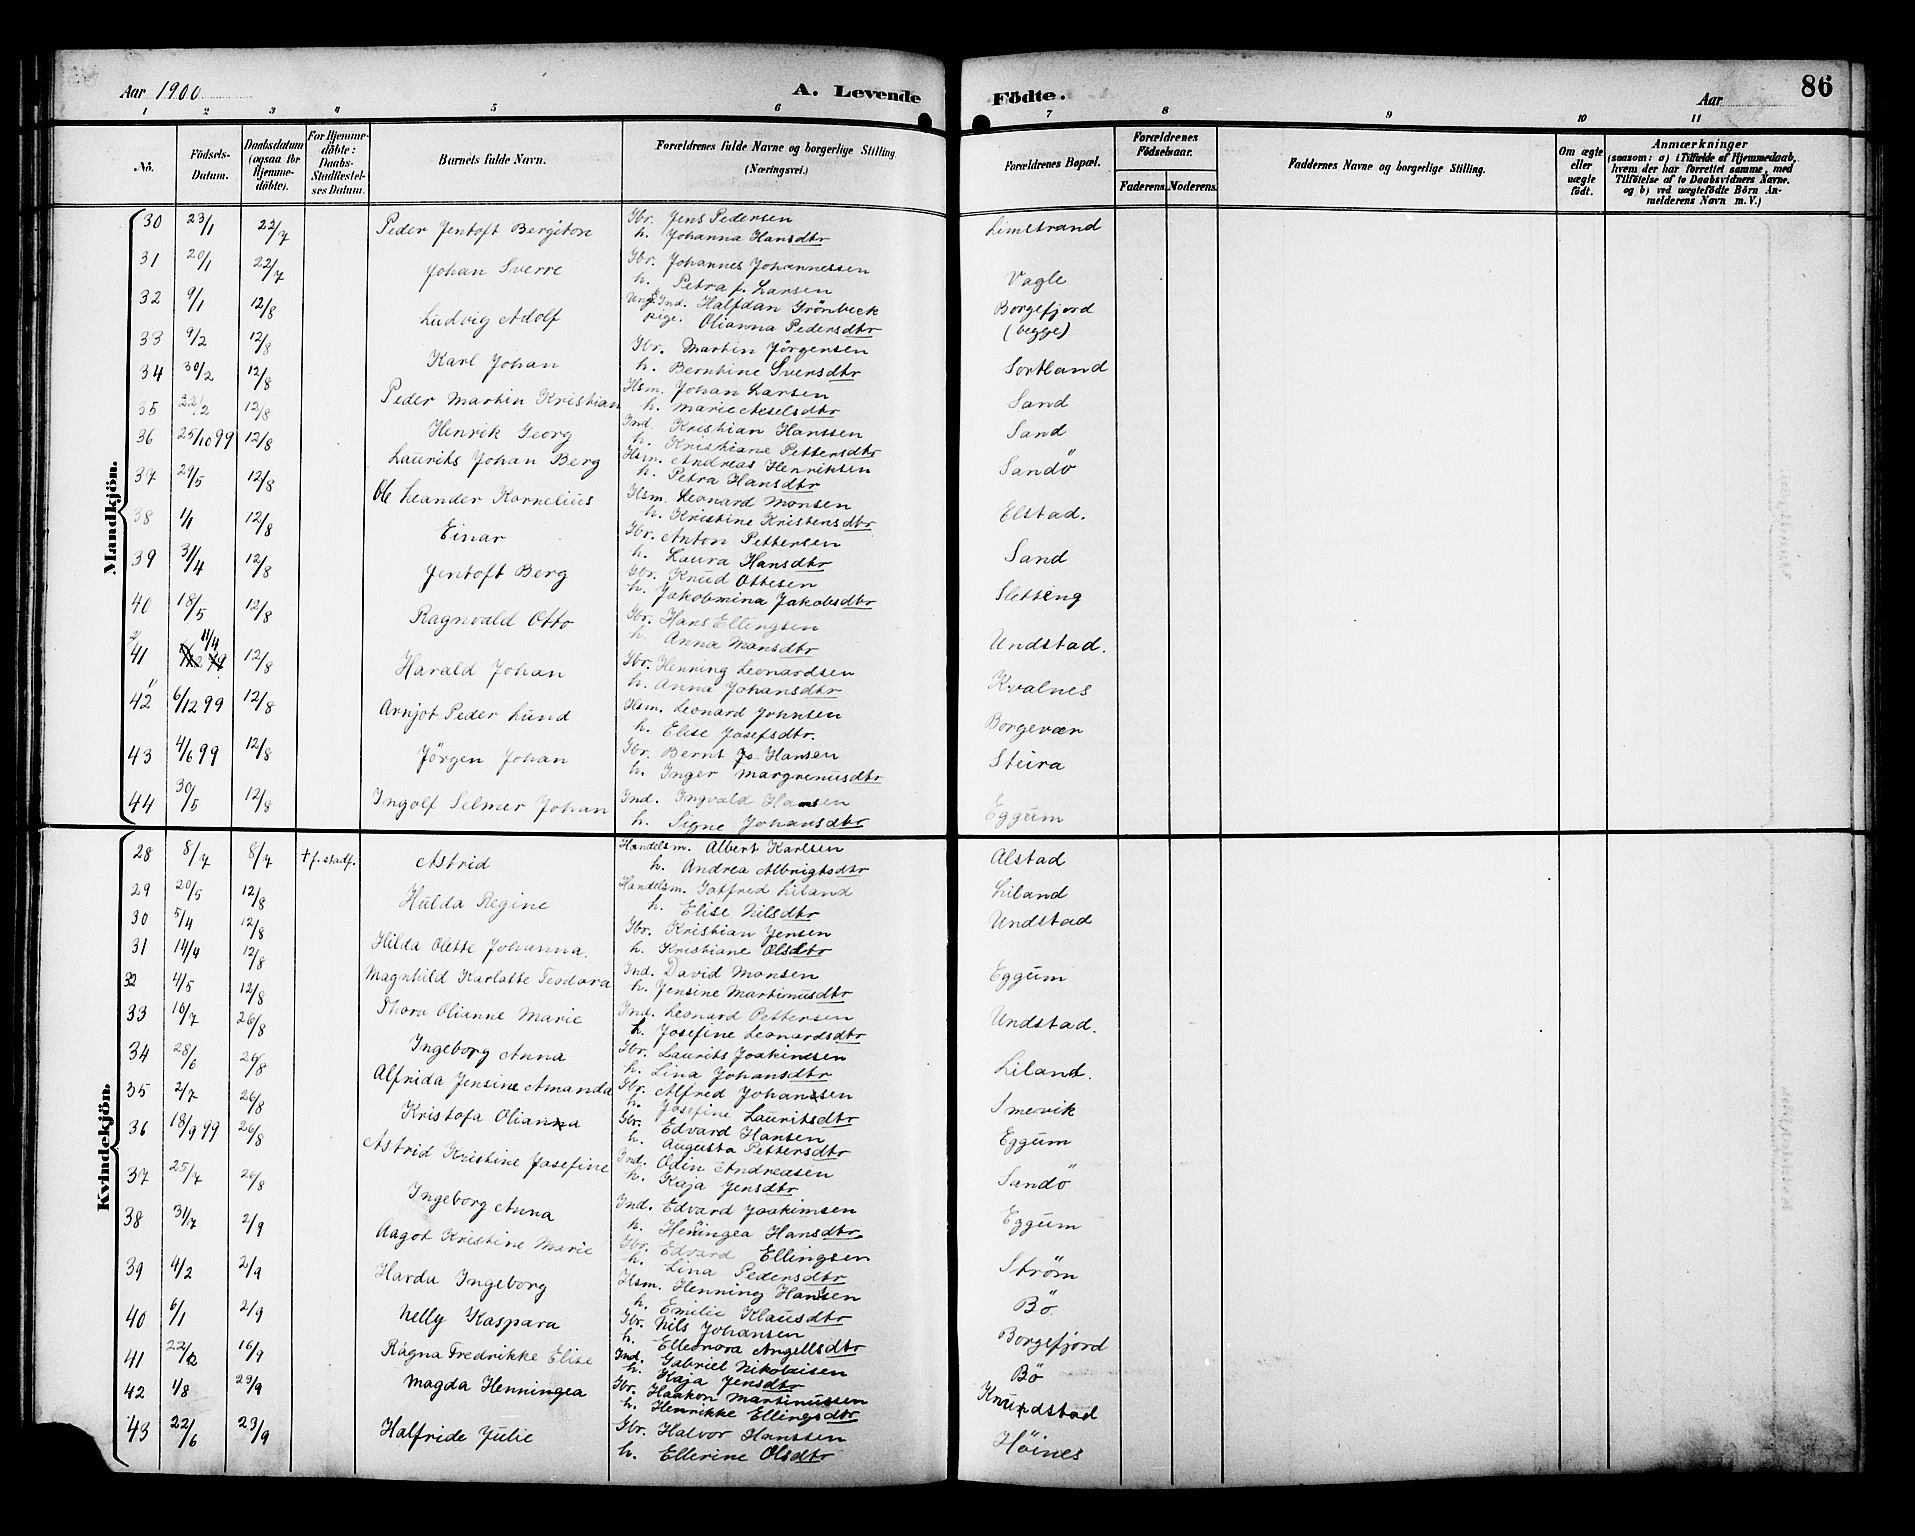 Aar 1900 A. Levende Födte. Aar 86
1 2 3 4 5 6 7 8 9 10 11
No. Födsels-Datum. Daabsdatum (ogsaa for Hjemmedöbte). For Hjemmedöbte: Daabs-Stadfæstelses Datum. Barnets fulde Navn. Forældrenes fulde Navne og borgerlige Stilling (Næringsvei.) Forældrenes Bopæl. Forældrenes Födselsaar. Faderens. Moderens. Faddernes Navne og borgerlige Stilling. Om ægte eller uægte födt. Anmærkninger (saasom: a) i Tilfælde af Hjemmedaab, hvem der har forrettet samme, med Tilföielse af to Daabsvidners Navne, og b) ved uægtefödte Börn Anmelderens Navn m. V.)
Mandkjön.
30 23/1 22/7 Peder Jentoft Bergiton Gbr. Jens Pedersen Limstrand
h. Johanna Hansdtr
31 20/1 22/7 Johan Sverre Gbr. Johannes Johannessen Vagle
h. Petra f. Larsen
32 9/1 12/8 Ludvig Adolf Ungk. Ind. Halfdan Grönbeck Borgefjord
pige. Olianna Pedersdtr (begge)
33 9/2 12/8 Karl Johan Gbr. Martin Jörgensen Sortland
h. Bernhine Sversdtr
34 30/2 12/8 Peder Martin Kristian Hsm. Johan Larsen Sand
h. Marie Akselsdtr
35 22/2 12/8 Henrik Georg Ind. Kristian Hanssen Sand
h. Kristiane Pettersdtr
36 25/10 99 12/8 Laurits Johan Berg Hsm. Andreas Henriksen Sandö
h. Petra Hansdtr
37 29/5 12/8 Ole Leander Kornelius Hsm. Leonard Monsen Elstad.
h. Kristine Kristensdtr
38 1/1 12/8 Einar Gbr. Anton Pettersen Sand
h. Laura Hansdtr
39 3/4 12/8 Jentoft Berg Gbr. Knud Ottesen Sletteng
h. Jakobmina Jakobsdtr
40 18/5 12/8 Ragnvald Otto Gbr. Hans Ellingsen Undstad.
h. Anna Mansdtr
41 11/4 12/8 Harald Johan Gbr. Henning Leonardsen Kvalnes
h. Anna Johansdtr
42 6/12 99 12/8 Arnjot Peder Lund Hsm. Leonard Johnsen Borgevær
h. Elise Josefsdtr.
43 4/6 99 12/8 Jörgen Johan Gbr. Bernt Jo Hansen Steira
h. Inger Margrenusdtr
44 30/5 12/8 Ingolf Selmer Johan Ind. Ingvald Hansen Eggum
h. Signe Johansdtr
Kvindekjön.
28 8/7 8/7 † f. stadf. Astrid Handelsm. Albert Karlsen Alstad
h. Andrea Albrigtsdtr
29 20/5 12/8 Hulda Regine Handelsm. Gotfred Liland Liland
h. Elise Nilsdtr
30 5/4 12/8 Hilda Olette Johanna. Gbr. Kristian Jensen Undstad
h. Kristiane Olsdtr
31 14/4 12/8 Magnhild Karlatte Teodora Ind. David Monsen Eggum
h. Jensine Martinusdtr
32 4/5 12/8 Thora Olianne Marie Ind. Leonard Pettersen Undstad.
h. Josefine Leonardsdtr
33 10/7 26/8 Ingeborg Anna Gbr. Laurits Joakimsen Liland.
h. Lina Johansdtr
34 28/6 26/8 Alfrida Jensine Amanda Gbr. Alfred Johansen Smevik
h. Josefine Lauritsdtr
35 2/7 26/8 Kristofa Olianna Gbr. Edvard Hansen Eggum
h. Augusta Pettersdtr
36 18/9 99 26/8 Astrid Kristine Josefine Ind. Odin Andreasen Sandö
h. Kaja Jensdtr
37 25/7 26/8 Ingeborg Anna Ind. Edvard Joakimsen Eggum
h. Henningea Hansdtr
38 31/7 2/9 Aagot Kristine Marie Gbr. Edvard Ellingsen Ström
h. Lina Pedersdtr
39 4/2 2/9 Harda Ingeborg Hsm. Henning Hansen Bö
h. Emilie Klausdtr
40 6/1 2/9 Nelly Kaspara Gbr. Nils Johansen Borgefjord
h. Elleonora Angellsdtr
41 22/2 16/9 Ragna Fredrikke Elise Ind. Gabriel Nikolaisen Bö
h. Kaja Jensdtr
42 1/8 23/9 Magda Henningea Gbr. Haakon Martinussen Knudstad
h. Henrikke Ellingsdtr
43 22/6 23/9 Halfride Julie Gbr. Halvor Hanssen Höines
h. Ellerine Olsdtr